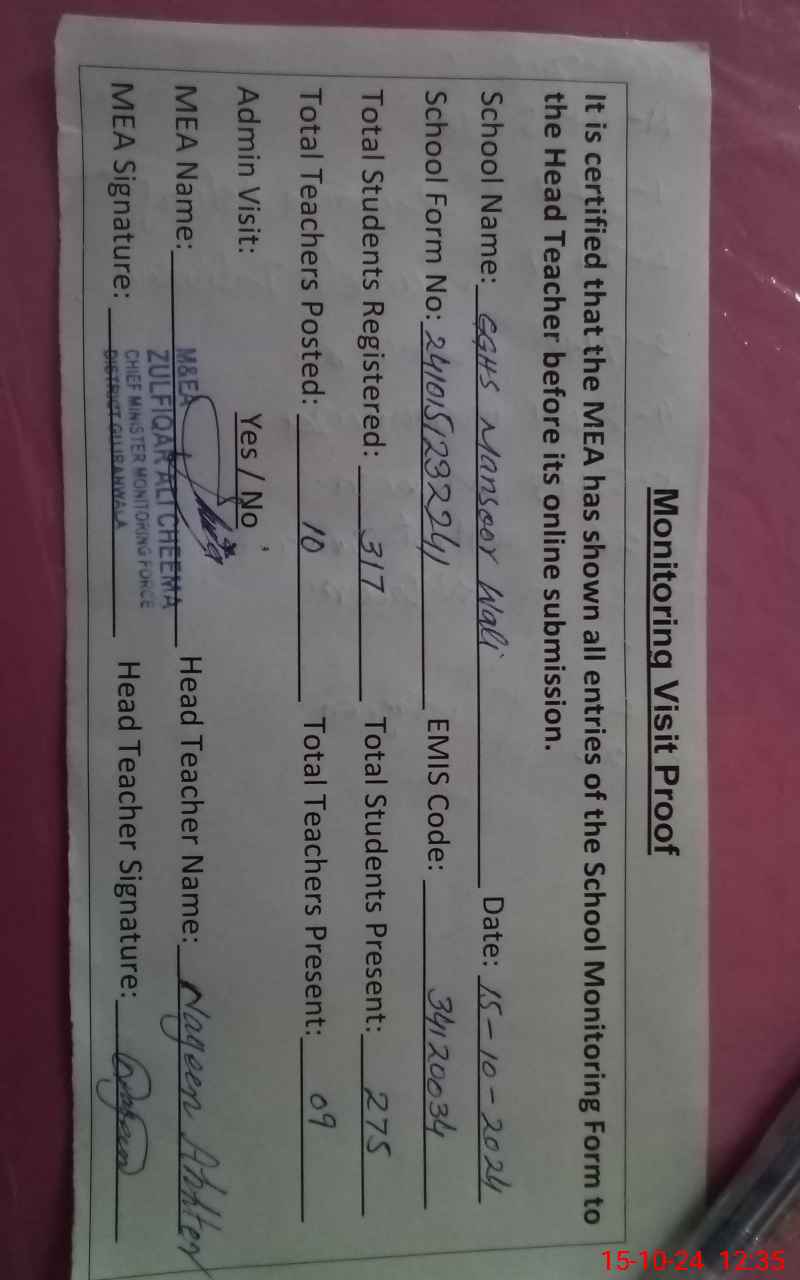 Monitoring Visit Proof
It is certified that the MEA has shown all entries of the School Monitoring Form to
the Head Teacher before its online submission.
School Name: GGHS Mansoor Wali Date: 15-10-2024
School Form No: EMIS Code: 34120034
Total Students Registered: 317 Total Students Present: 275
Total Teachers Posted: 10 Total Teachers Present: 09
Admin Visit: Yes / No
MEA Name: Head Teacher Name: Nageen Akhter
MEA Signature: Head Teacher Signature:
M&EA
ZULFIQAR ALI CHEEMA
CHIEF MINISTER MONITORING FORCE
DISTRICT GUJRANWALA
15-10-24 12:35